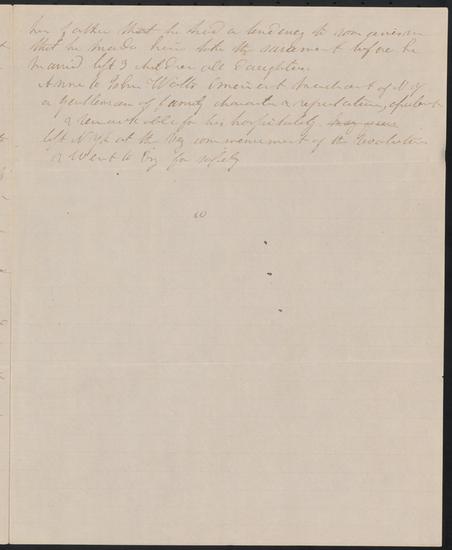 her father that he had a tendency to
that he made him take the sacrament before he
married left 3 children all daughters
Anne to John Watts Eminent Merchant of N Y
a gentleman of family character & reputation, opulent
& remarkable for his hospitality.
left N Yk at the beg commencement of the Revolution
& Went to Eng for safety